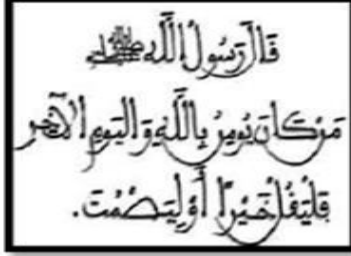 قَالَ رَسُولُ اللَّهِ ﷺ
مَن كَانَ يُومِنُ بِاللَّهِ وَالْيَومِ الْآخِرِ
فَلْيَقُلْ خَيْرًا أَوْ لِيَصْمُتْ.